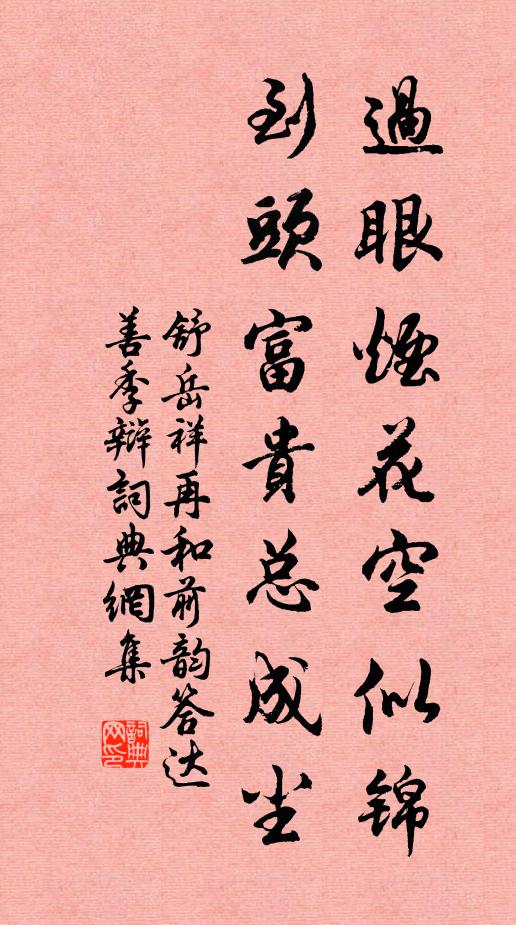 過眼煙花空似錦
到頭富貴总成尘
舒岳祥再和前韵答达
善季辯詞典網集
詞典网印